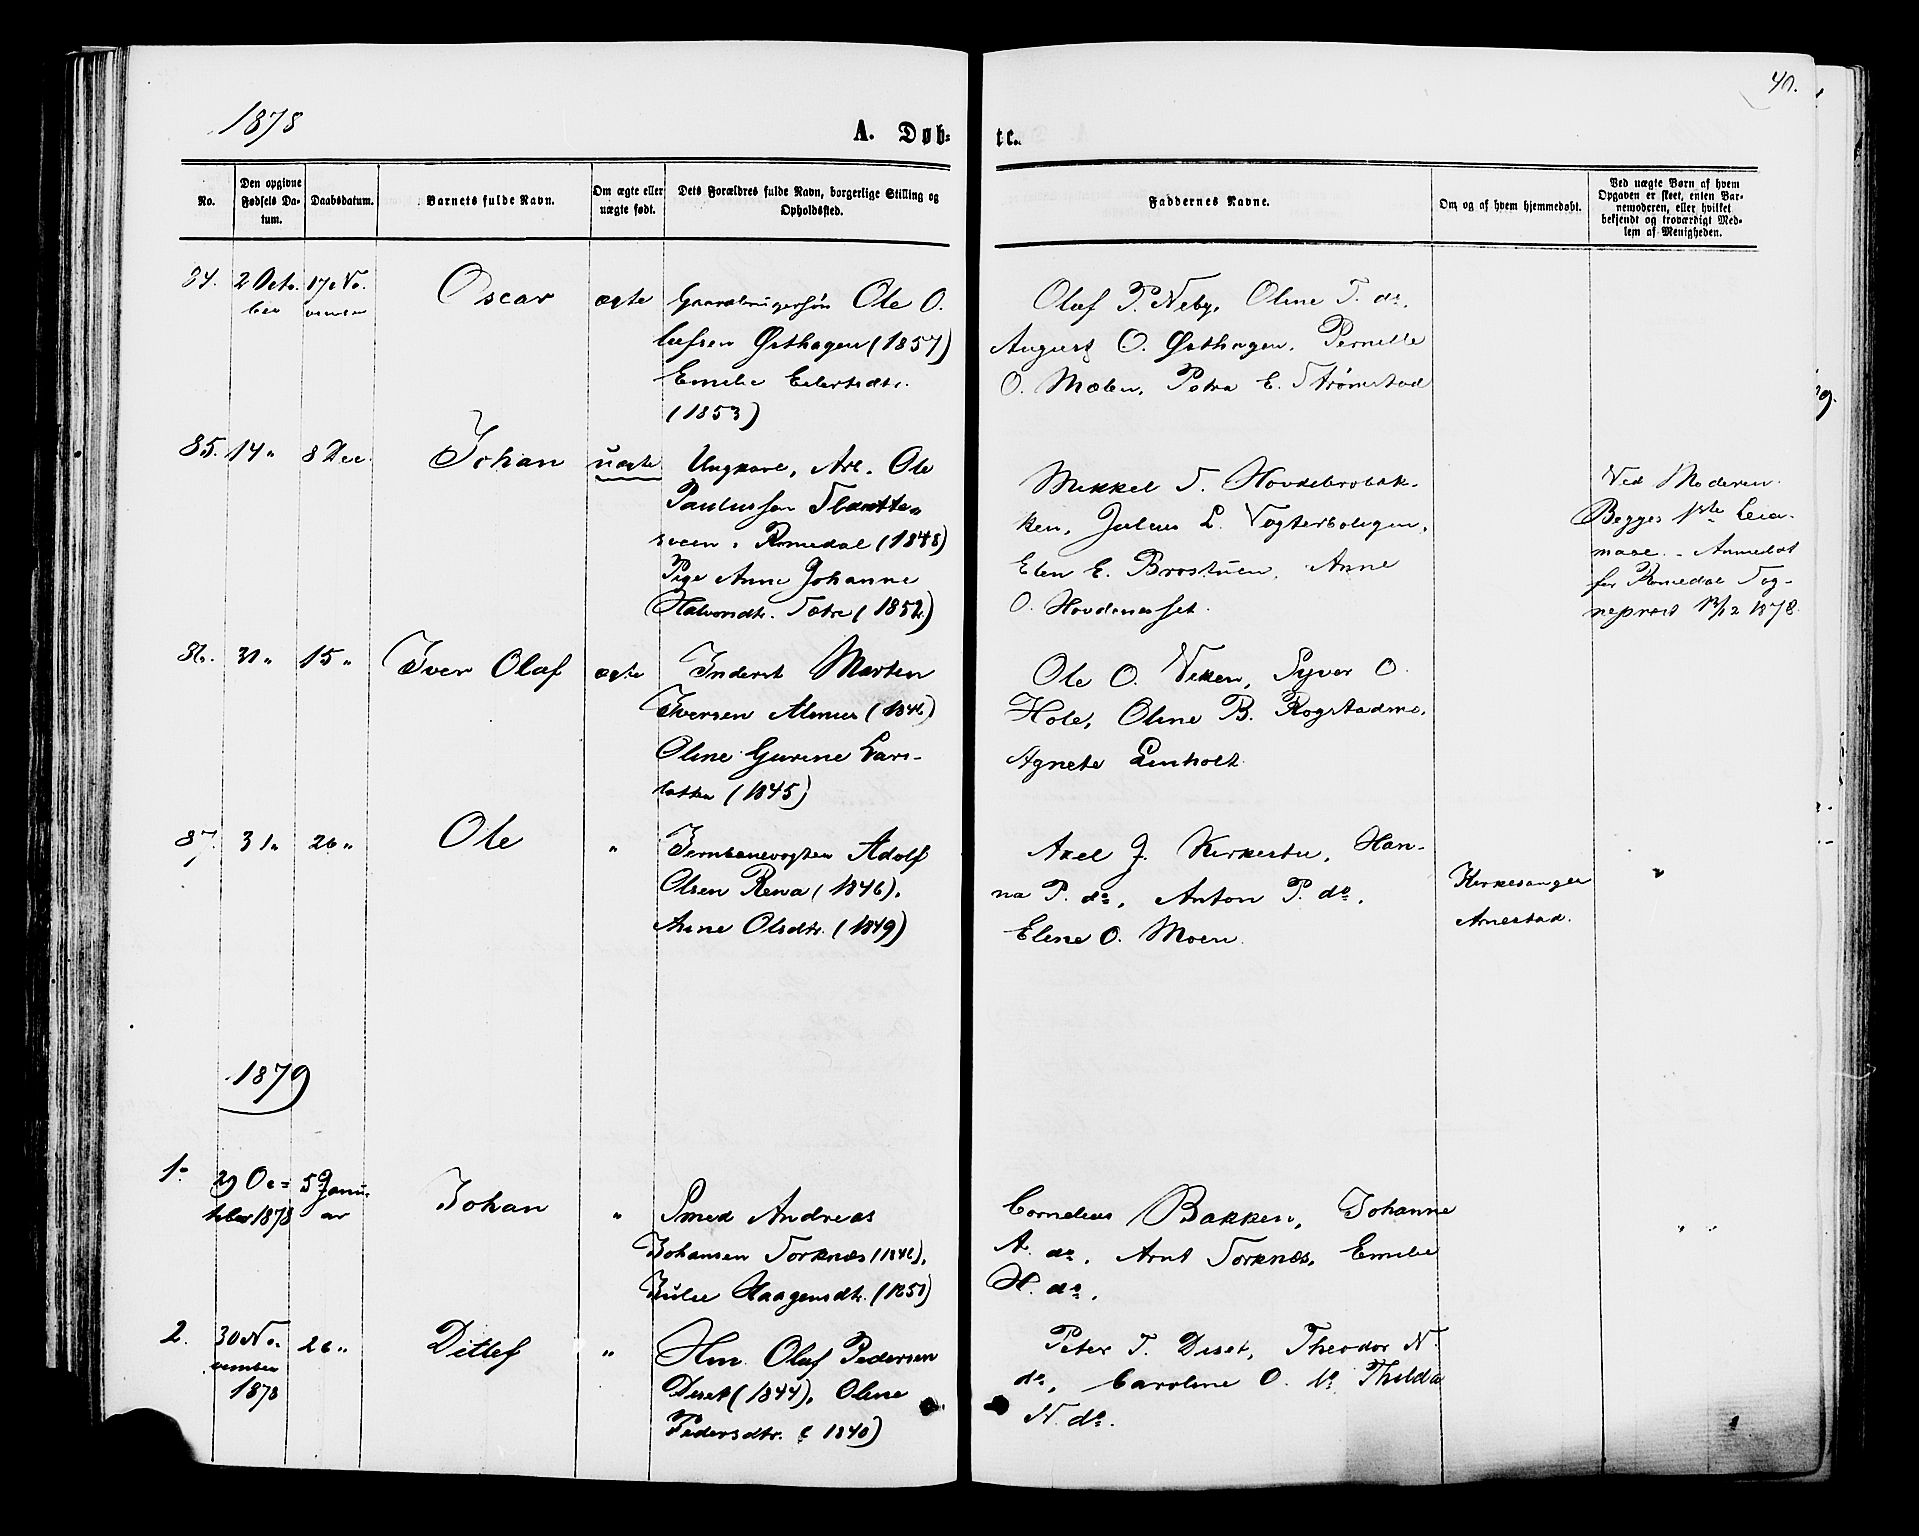 40.
1878
A. Døb-
te.
No.
Den opgivne Fødsels Da-
tum.
Daabsdatum.
Barnets fulde Navn.
Om ægte eller
uægte født.
Dets Forældres fulde Navn, borgerlige Stilling og
Opholdssted.
Faddernes Navne.
Om og af hvem hjemmedøbt.
Ved uægte Børn af hvem
Opgaven er skeet, enten Bar-
nemoderen, eller hvilket
bekjendt og troværdigt Med-
lem af Menigheden.
84. 2 Octo- 17 No-
ber vember
Oscar
ægte
Gaardbrugersøn Ole O.
lufsen Østhagen (1857)
Emilie Eilertsdtr.
(1853)
Olaf P. Neby, Oline T. do.
August O. Østhagen, Pernille
O. Mælen, Petra E. Strømstad
85. 14 " 8 Dec.
Johan
uægte
Ungkarl, Arb. Ole
Paulussen
i Romedal (1848)
Pige Anne Johanne
Halvorsdtr. Sætre (1852)
Mikkel T. Hovdebrobak-
ken, Julius L. Vogterboligen,
Elen E. Brostuen, Anne
O. Hovdeneset.
Ved Moderen.
Begges 1ste Leier-
maal. - Anmeldt
for Romedal Sog-
neprest 13/12 1878.
86. 31 " 15 "
Iver Olaf
ægte
Inderst Morten
Iversen (1846)
Oline Gurine Lars-
datter (1845)
Ole O. Viken, Syver O.
Hole, Oline B. Rogstadmo,
Agnete Linholt
87. 31 " 26 "
Ole
"
Jernbanevogter Adolf
Olsen Rena (1846),
Anne Olsdtr. (1849)
Axel J. Kirkestu, Han-
na P. do, Anton P. do,
Eline O. Moen.
Kirkesanger
Arnestad.
"
1879
1. 29 Oc- 5 Janu-
tober 1878 ar
Johan
"
Smed Andreas
Johansen Torknæs (1846),
Julie Haagensdtr. (1851)
Cornelius Bakken, Johanne
A. do, Arnt Torknæs, Emilie
H. do.
" "
2. 30 No- 26 "
vember
1878
Ditlef
"
Hm. Olaf Pedersen
Diset (1844), Oline
Pedersdtr. (1840)
Peter T. Diset, Theodor N.
do, Caroline O. do Thilda
N. do.